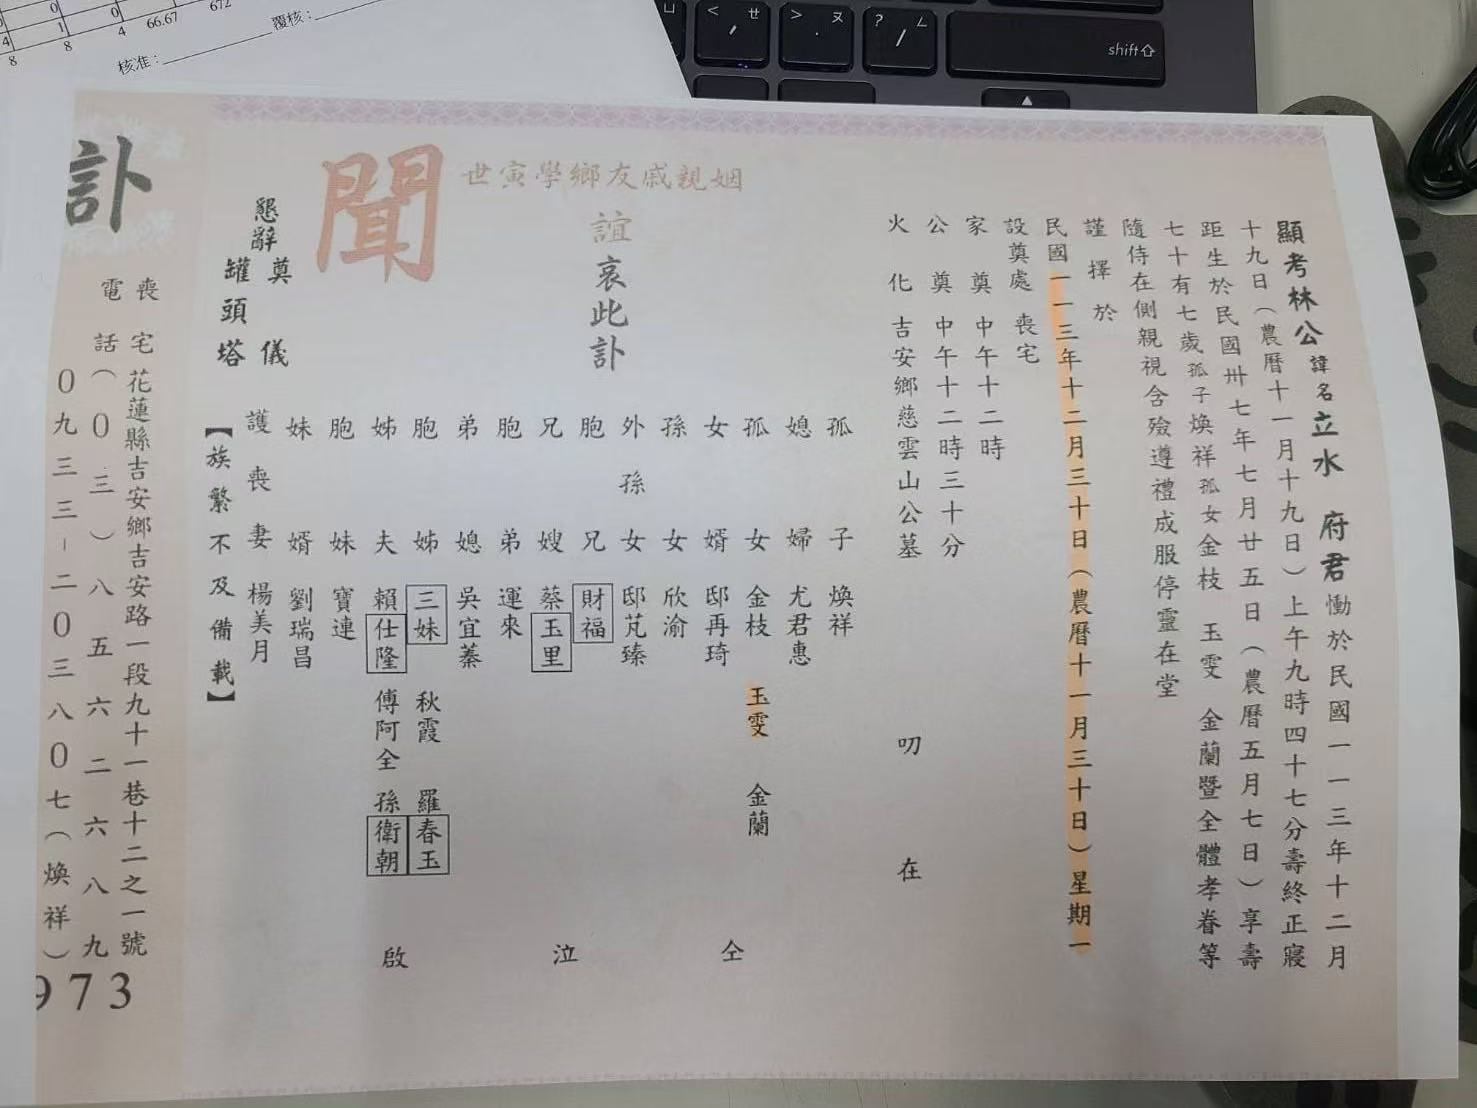 顯考林公諱名立水 府君慟於民國一一三年十二月
十九日（農曆十一月十九日）上午九時四十七分壽終正寢
距生於民國卅七年七月廿五日（農曆五月七日）享壽
七十有七歲孤子煥祥孤女金枝 玉雯 金蘭暨全體孝眷等
隨侍在側親視含殮遵禮成服停靈在堂
謹擇於
民國一一三年十二月三十日（農曆十一月三十日）星期一
設奠處 喪宅
家奠 中午十二時
公奠 中午十二時三十分
火化 吉安鄉慈雲山公墓
叨在
世寅學鄉友戚親姻
誼哀此訃
聞
孤子 煥祥
媳婦 尤君惠
孤女 金枝 玉雯 金蘭
女婿 邸再琦
孫女 欣渝
外孫女 邸芃臻
胞兄 財福
兄嫂 蔡玉里
胞弟 運來
弟媳 吳宜蓁
胞姊 三妹 秋霞 羅春玉
姊夫 賴仕隆 傅阿全 孫衛朝
胞妹 寶連
妹婿 劉瑞昌
護喪妻 楊美月
仝
泣
啟
懇辭奠儀
罐頭塔
【族繁不及備載】
訃
喪宅 花蓮縣吉安鄉吉安路一段九十一巷十二之一號
電話（０三）八五六二六八九
０九三三－二０三八０七（煥祥）
973
覆核：
核准：
0
0
1
0
4
8
8
4
66.67
672
ㄩ
< ㄝ ,
> ㄡ .
? ㄥ /
shift